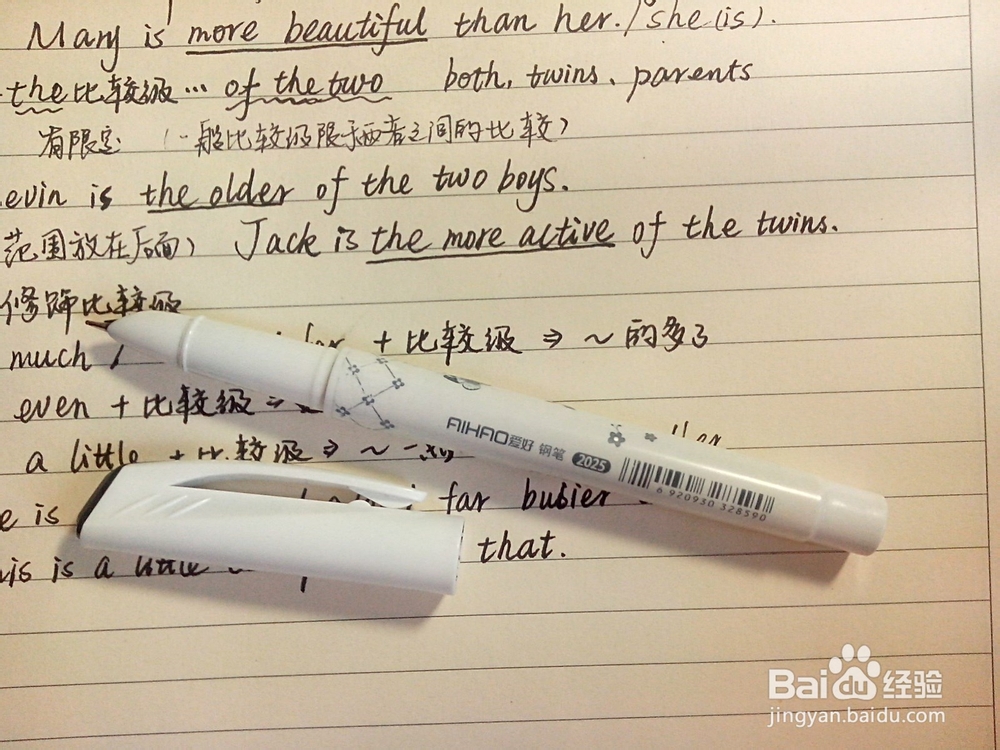 Mary is more beautiful than her. / she (is).
the 比较级 … of the two both, twins、parents
有限定 (一般比较级限于两者之间的比较)
evin is the older of the two boys.
范围放在后面) Jack is the more active of the twins.
修饰比较级
much / far + 比较级 ⇒ ~ 的多了
even + 比较级 ⇒
a little + 比较级 ⇒ ~ 一些
e is far busier
is is a little that.
AIHAO 爱好 钢笔 2025
6 920930 328590
Baidu 经验
jingyan.baidu.com